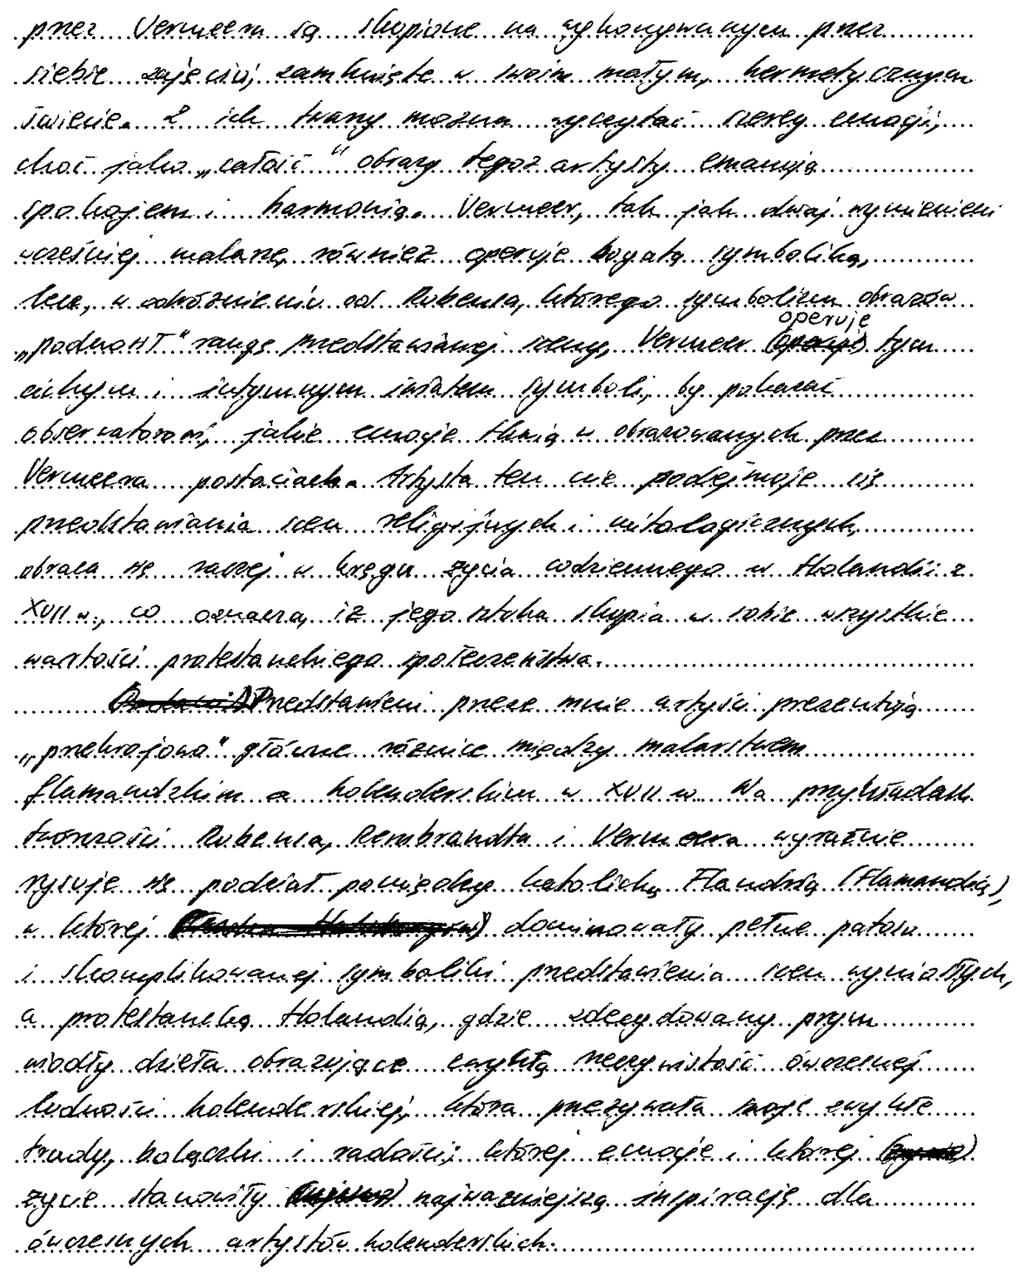 przez Vermeera są skupione na wykonywanych przez
siebie zajęciu, zamknięte w swoim małym, hermetycznym
świecie. Z ich twarzy można wyczytać szereg emocji,
choć jako „całość" obrazy tegoż artysty emanują
spokojem i harmonią. Vermeer, tak jak dwaj wymienieni
wcześniej malarze, również operuje bogatą symboliką,
lecz, w odróżnieniu od Rubensa, którego symbolizm obrazów
„podnosił" rangę przedstawianej sceny, Vermeer operuje tym
cichym i intymnym światem symboli, by pokazać
obserwatorom, jakie emocje tkwią w obrazowanych przez
Vermeera postaciach. Artysta ten nie podejmuje się
przedstawiania scen religijnych i mitologicznych,
obraca się raczej w kręgu życia codziennego w Holandii z
XVII w., co oznacza, iż jego sztuka skupia w sobie wszystkie
wartości protestanckiego społeczeństwa.
Przedstawieni przeze mnie artyści prezentują
„przekrojowo" główne różnice między malarstwem
flamandzkim a holenderskim w XVII w. Na przykładach
twórczości Rubensa, Rembrandta i Vermeera wyraźnie
rysuje się podział pomiędzy katolicką Flandrią (Flamandią),
w której dominowały pełne patosu
i skomplikowanej symboliki przedstawienia scen wyniosłych,
a protestancką Holandią, gdzie zdecydowany prym
wiodły dzieła obrazujące zwykłą rzeczywistość ówczesnej
ludności holenderskiej, która przeżywała swoje zwykłe
trudy, bolączki i radości; której emocje i której
życie stanowiły najważniejszą inspirację dla
ówczesnych artystów holenderskich.